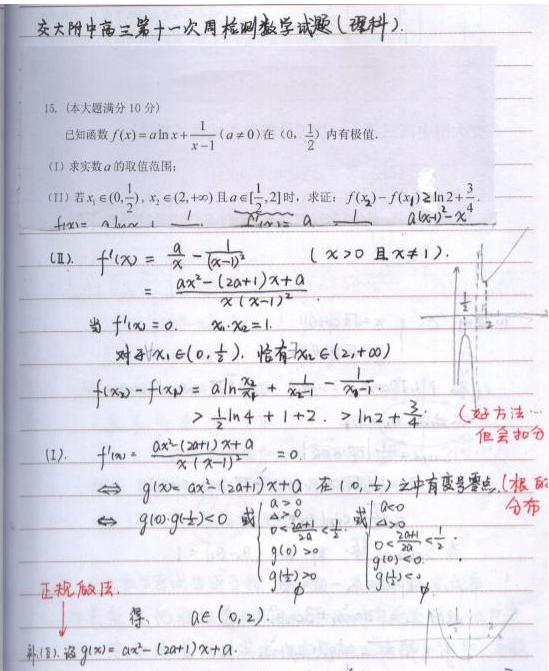 交大附中高三第十一次周检测数学试题(理科).
15. (本大题满分10分)
已知函数 f(x)=a ln x + 1/(x-1) (a≠0)在 (0, 1/2) 内有极值.
(I) 求实数a的取值范围;
(II) 若x₁∈(0,1/2), x₂∈(2,+∞)且a∈[1/2,2]时, 求证: f(x₂)-f(x₁)≥ln2+3/4.
(II). f'(x) = a/x - 1/(x-1)² (x>0 且 x≠1).
= (ax²-(2a+1)x+a)/(x(x-1)²).
当 f'(x)=0. x₁·x₂=1.
对于x₁∈(0,1/2). 恰有x₂∈(2,+∞)
f(x₂)-f(x₁) = a ln x₂/x₁ + 1/(x₂-1) - 1/(x₁-1)
> 1/2 ln4 + 1+2. > ln2+3/4.
(好方法…
但会扣分
(I). f'(x)= (ax²-(2a+1)x+a)/(x(x-1)²) =0.
⇔ g(x)=ax²-(2a+1)x+a 在(0,1/2)之中有变号零点.(根的
分布
⇔ g(0)·g(1/2)<0 或 { a>0 Δ>0 0<(2a+1)/2a<1/2 g(0)>0 g(1/2)>0 ∅ 或 { a<0 Δ>0 0<(2a+1)/2a<1/2 g(0)<0. g(1/2)<0 ∅
正规做法.
得. a∈(0,2).
补(II). 设g(x)=ax²-(2a+1)x+a.